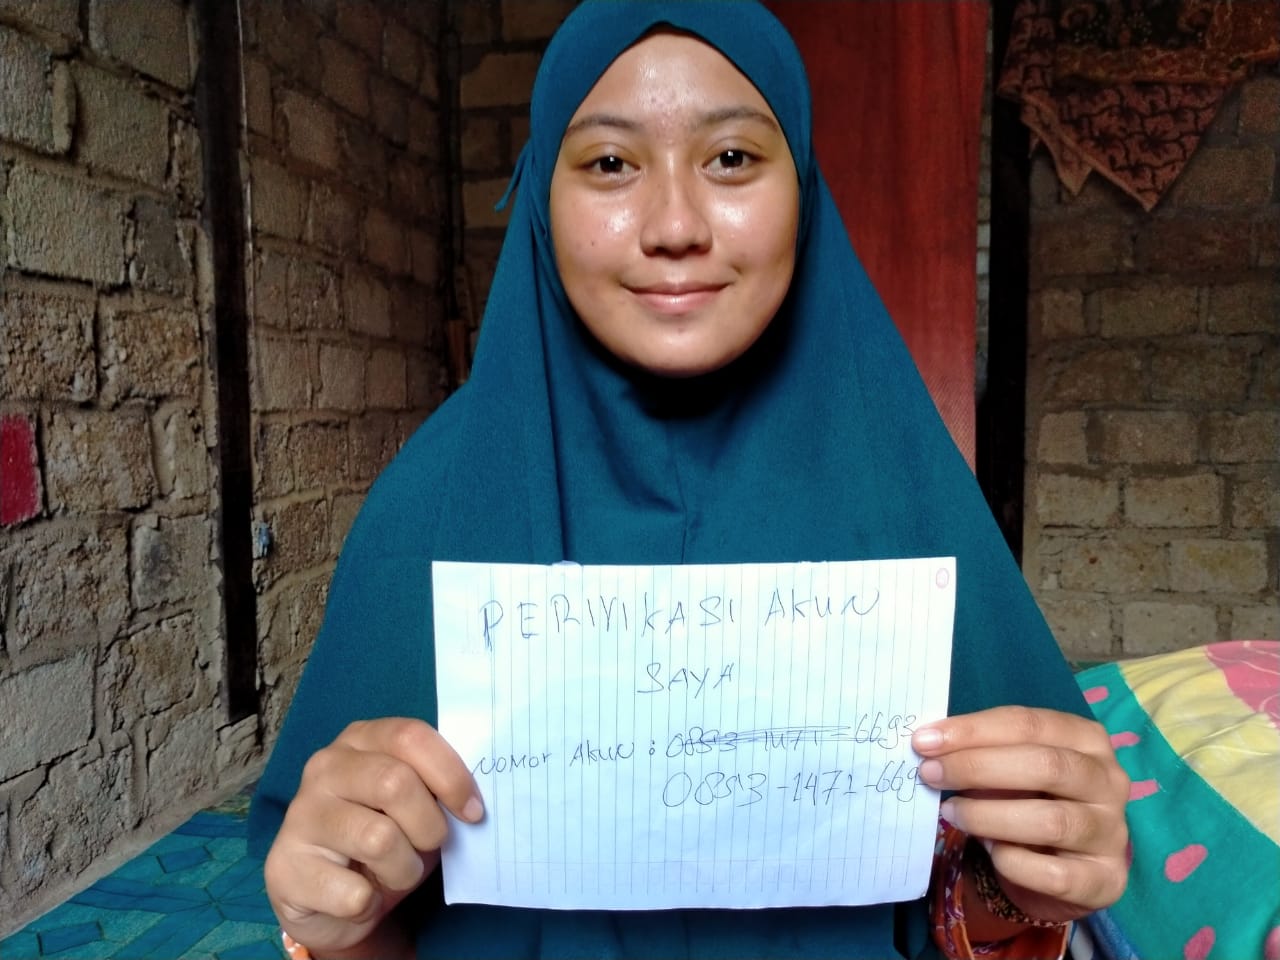 PERIVIKASI AKUN
SAYA
NOMOr AKUN : 0853-1471-6693
0853-1471-669